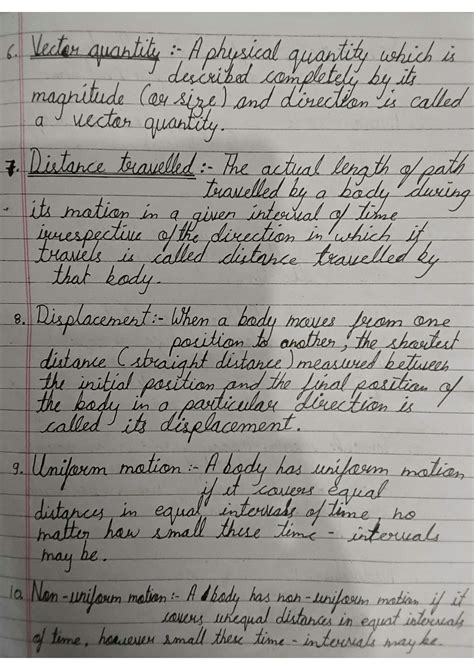 6. Vector quantity :- A physical quantity which is
described completely by its
magnitude (or size) and direction is called
a vector quantity.
7. Distance travelled :- The actual length of path
travelled by a body during
its motion in a given interval of time
irrespective of the direction in which it
travels is called distance travelled by
that body.
8. Displacement:- When a body moves from one
position to another, the shortest
distance (straight distance) measured between
the initial position and the final position of
the body in a particular direction is
called its displacement.
9. Uniform motion :- A body has uniform motion
if it covers equal
distances in equal intervals of time, no
matter how small these time - intervals
may be.
10. Non-uniform motion:- A body has non-uniform motion if it
covers unequal distances in equal intervals
of time, however small these time - intervals may be.